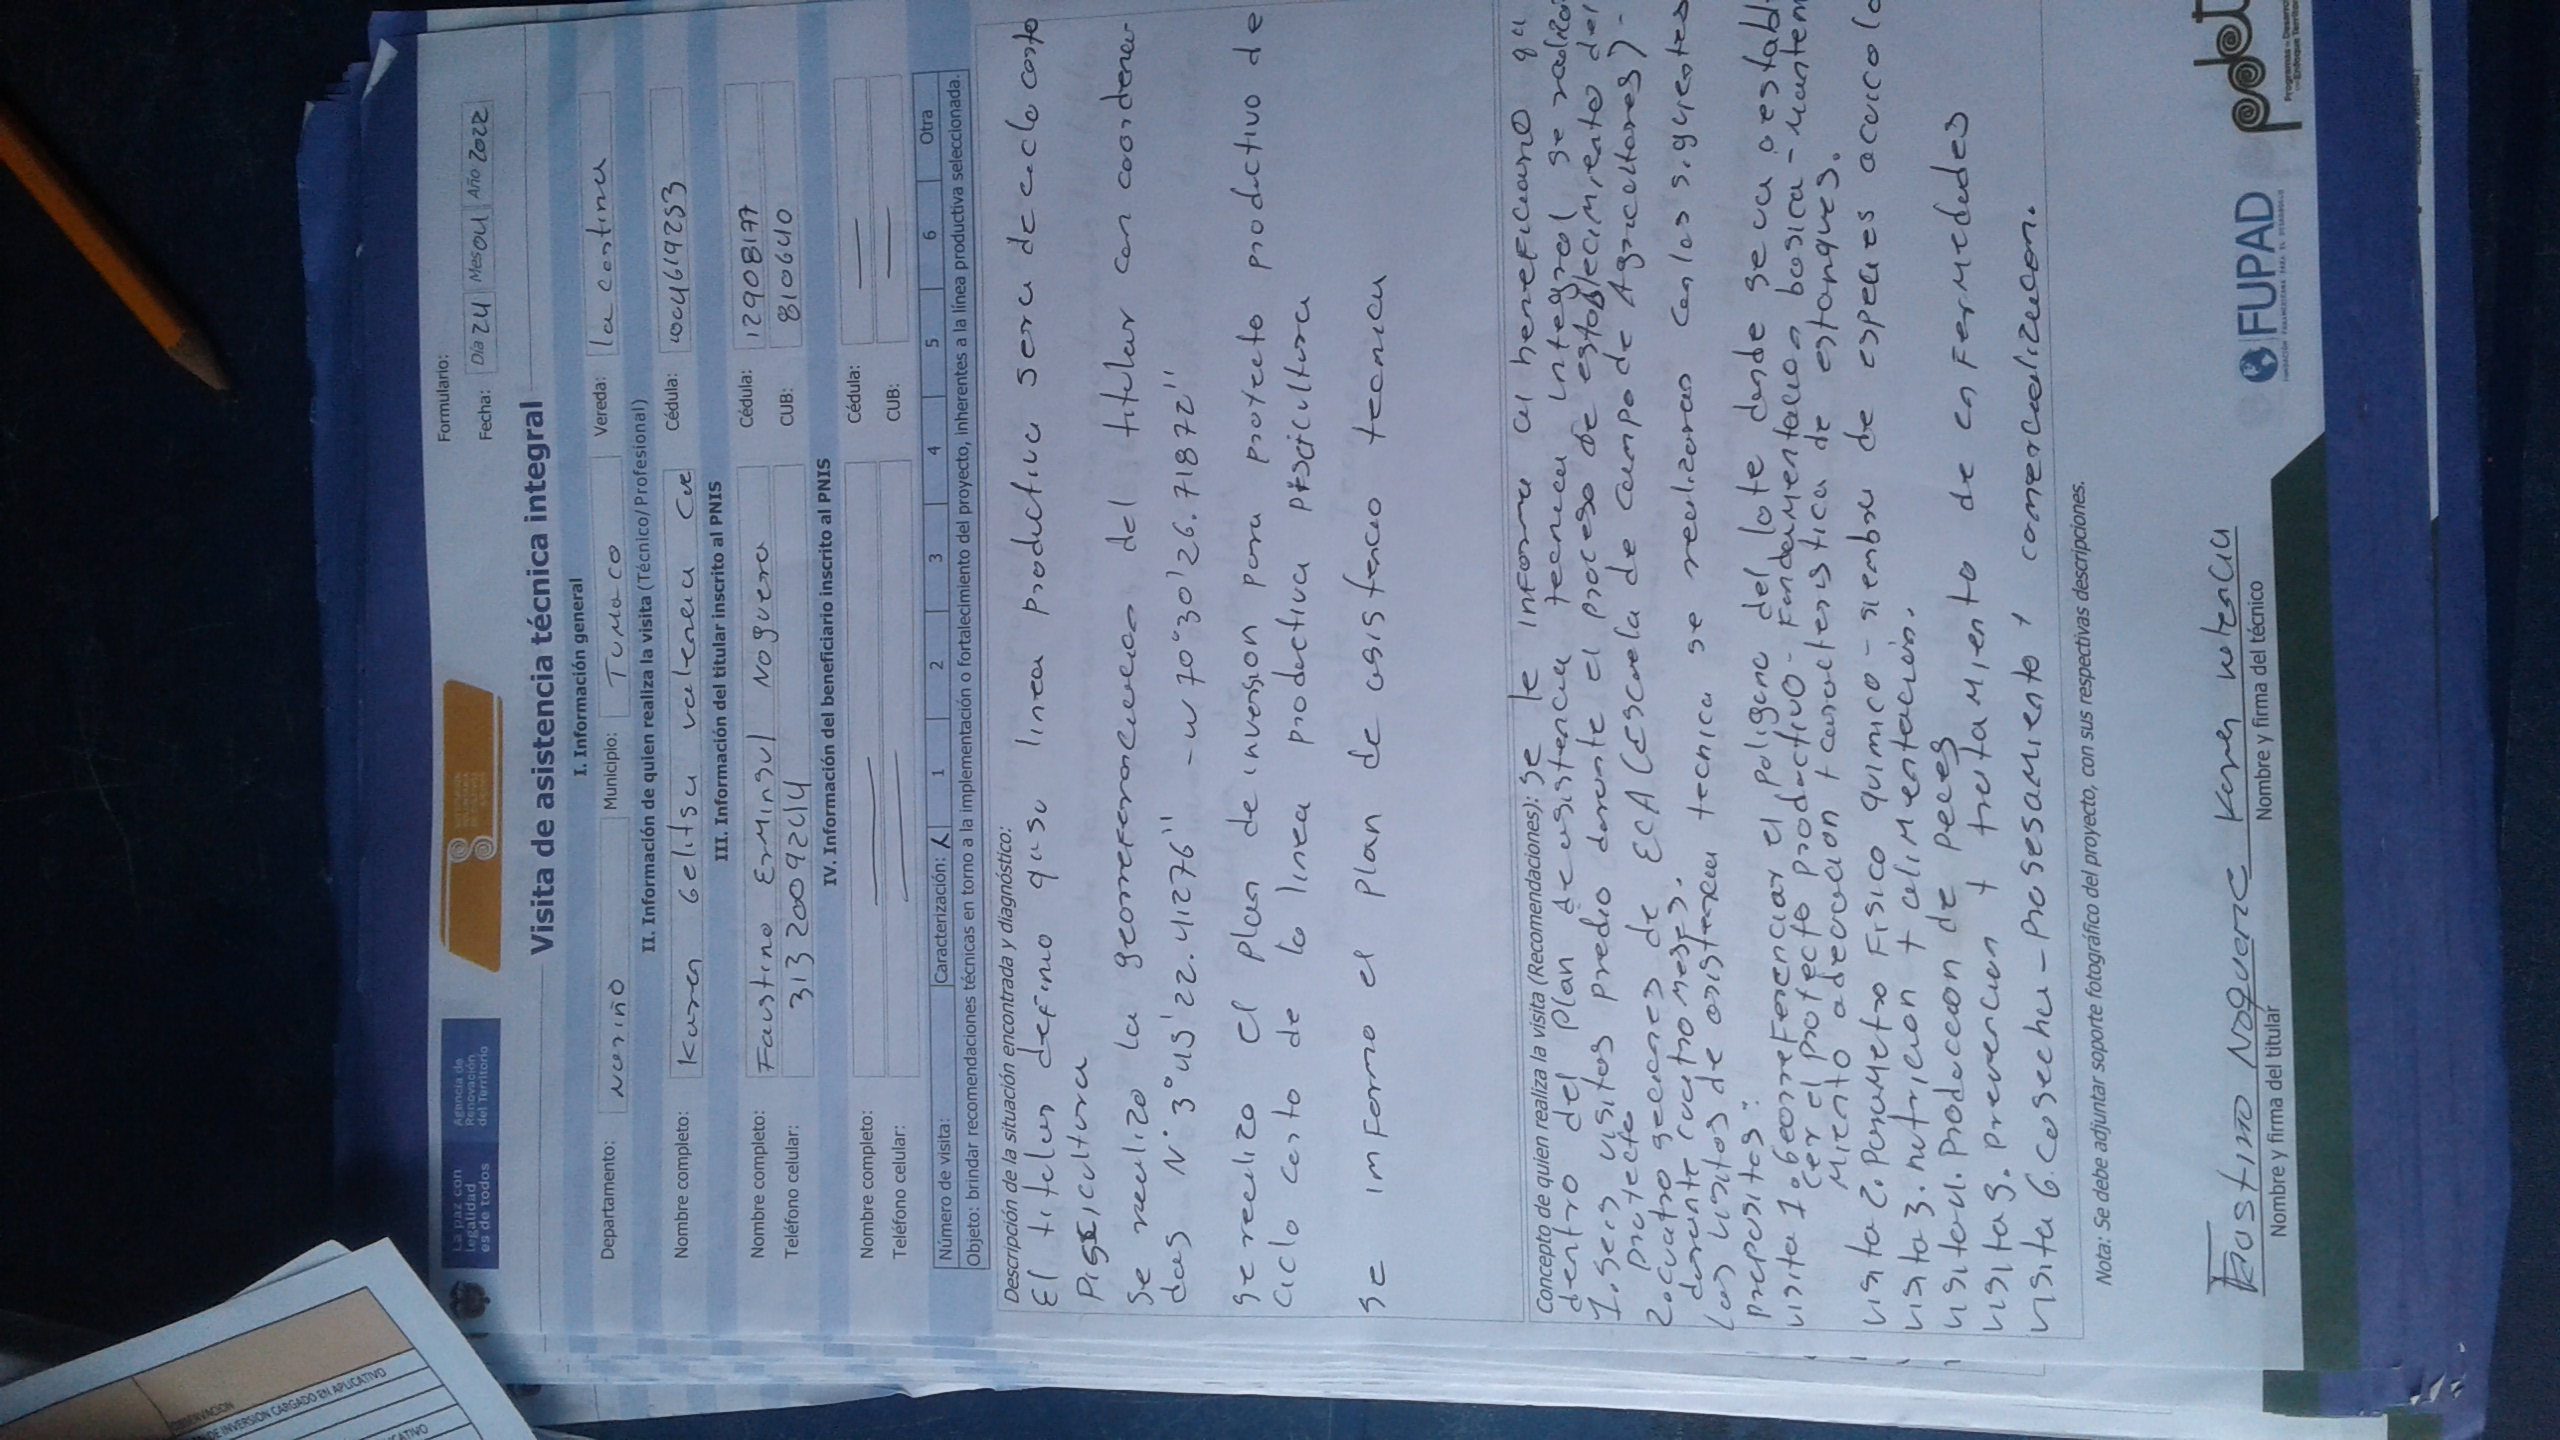 La paz con
legalidad
es de todos
Agencia de
Renovación
del Territorio
Formulario:
Fecha: Día 24 Mes 04 Año 2022
Visita de asistencia técnica integral
I. Información general
Departamento: Nariño Municipio: Tumaco Vereda: la cortina
II. Información de quien realiza la visita (Técnico/ Profesional)
Nombre completo: Karen Gelitsa valencia Cue Cédula: 1004619253
III. Información del titular inscrito al PNIS
Nombre completo: Faustino Erminsul Noguera Cédula: 12908177
Teléfono celular: 3132009244 CUB: 810640
IV. Información del beneficiario inscrito al PNIS
Nombre completo: Cédula:
Teléfono celular: CUB:
Número de visita: Caracterización: X 1 2 3 4 5 6 Otra
Objeto: brindar recomendaciones técnicas en torno a la implementación o fortalecimiento del proyecto, inherentes a la línea productiva seleccionada.
Descripción de la situación encontrada y diagnóstico:
El titular definio que su linea productiva sera de ciclo corto
Piscicultura
Se realizo la georreferenciacion del titular con coordena
das N° 3°45'22.41276" - w 70°30'26.71872"
se realizo el plan de inversion para protecto productivo de
ciclo corto de la linea productiva piscicultura
se informo el plan de asistencia tecnica
Concepto de quien realiza la visita (Recomendaciones): se le informa al beneficiario qu
dentro del plan de asistencia tecnica integral se realiza
1. seis visitas predio durante el proceso de establecimiento del
protecto
2. cuatro secciones de ECA (escuela de campo de Agricultores) -
durante cuatro meses.
Las visitas de asistencia tecnica se realizaran con los siguientes
prepositos:
visita 1. georreferenciar el poligono del lote donde se va a establ
cer el protecto productivo - Fundamentacion basica - manteni
miento adecuacion + caracteristica de estanques.
visita 2. Parametro Fisico quimico - siembra de especies acuicola
visita 3. nutricion + alimentación.
visita 4. produccion de peces
visita 5. prevencion + tratamiento de enfermedades
visita 6. cosecha - prosesamiento y comercializacion.
Nota: Se debe adjuntar soporte fotográfico del proyecto, con sus respectivas descripciones.
Faustino Noguera C Karen valencia
Nombre y firma del titular Nombre y firma del técnico
FUPAD
FUNDACIÓN PANAMERICANA PARA EL DESARROLLO
pdet
OBSERVACION
DE INVERSION CARGADO EN APLICATIVO